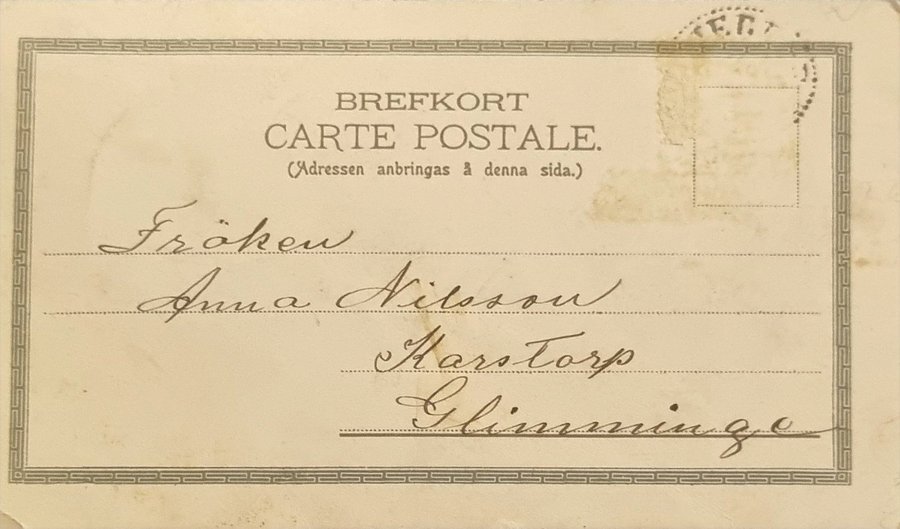 BREFKORT
CARTE POSTALE.
(Adressen anbringas å denna sida.)
Fröken
Anna Nilsson
Karstorp
Glimminge